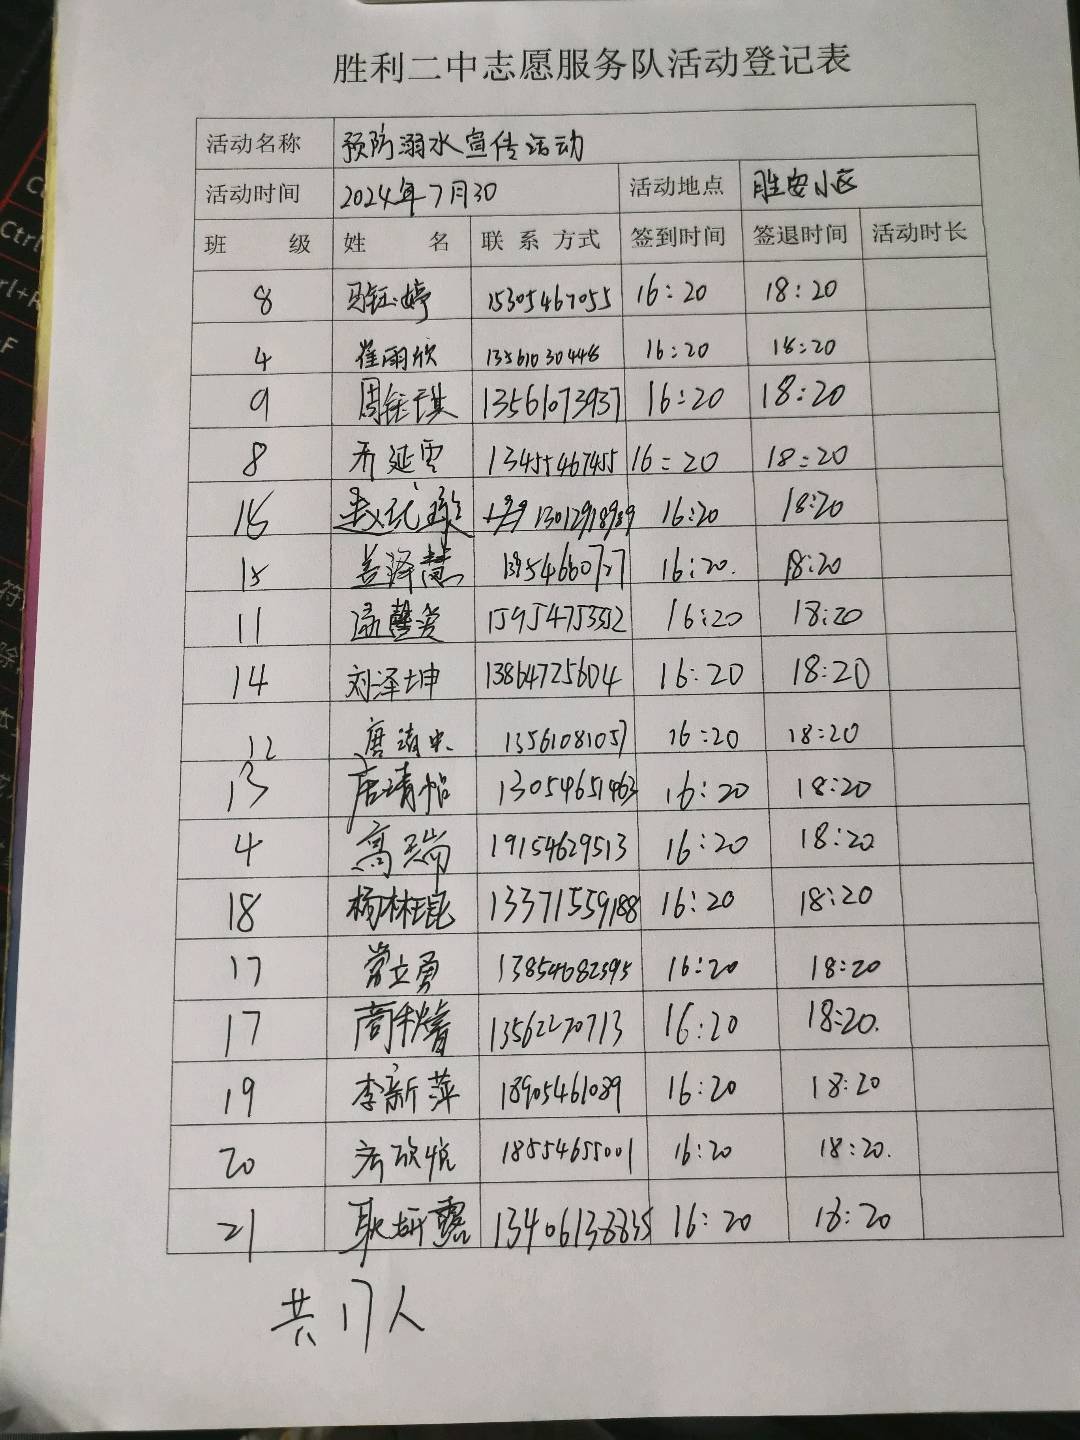 胜利二中志愿服务队活动登记表
活动名称 预防溺水宣传活动
活动时间 2024年7月30 活动地点 胜安小区
班 级 姓 名 联 系 方式 签到时间 签退时间 活动时长
8 马钰婷 15305467055 16:20 18:20
4 崔雨欣 13561030448 16:20 18:20
9 周钰琪 13561073937 16:20 18:20
8 乔延雪 13455467455 16:20 18:20
16:20 18:20
15 盖泽慧 16:20. 18:20
11 15954753352 16:20 18:20
14 刘泽坤 13864725604 16:20 18:20
12 唐 13561081057 16:20 18:20
13 唐靖怡 13054651463 16:20 18:20
4 高瑞 19154629513 16:20 18:20
18 杨林琨 13371559188 16:20 18:20
17 常立勇 13854682395 16:20 18:20
17 13562270713 16:20 18:20.
19 李新萍 18905461089 16:20 18:20
20 欣悦 18554655001 16:20 18:20.
21 耿妍露 13406138835 16:20 18:20
共17人